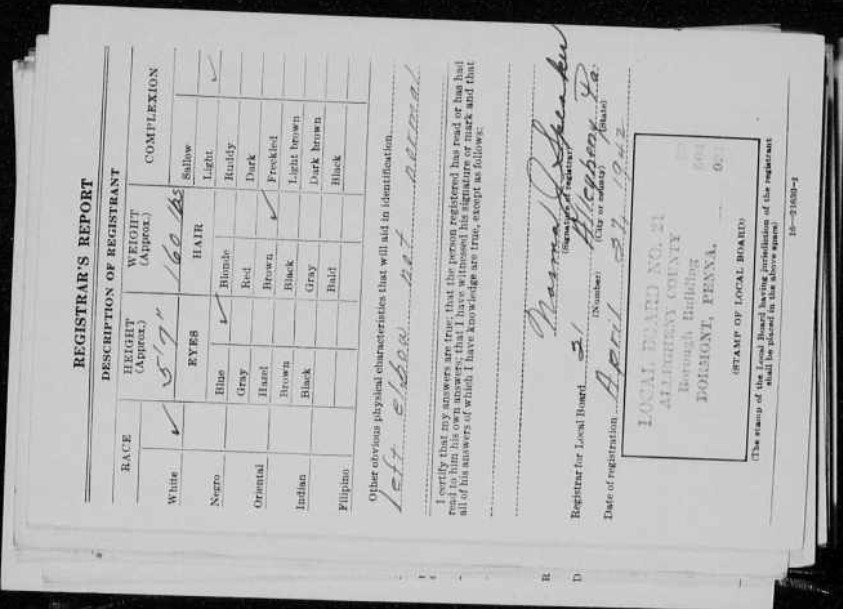 REGISTRAR'S REPORT
DESCRIPTION OF REGISTRANT
RACE
HEIGHT (Approx.)
WEIGHT (Approx.)
COMPLEXION
White ✓
5'7"
160 lbs
Sallow
EYES
HAIR
Light ✓
Negro
Blue ✓
Blonde
Ruddy
Gray
Red
Dark
Oriental
Hazel
Brown ✓
Freckled
Brown
Black
Light brown
Indian
Black
Gray
Dark brown
Bald
Black
Filipino
Other obvious physical characteristics that will aid in identification
left elbow not normal
I certify that my answers are true; that the person registered has read or has had
read to him his own answers; that I have witnessed his signature or mark and that
all of his answers of which I have knowledge are true, except as follows:
Speaker
(Signature of registrar)
Registrar for Local Board 21 Allegheny Pa.
(Number) (City or county) (State)
Date of registration April 27 1942
LOCAL BOARD NO. 21
ALLEGHENY COUNTY
Borough Building
DORMONT, PENNA.
(STAMP OF LOCAL BOARD)
(The stamp of the Local Board having jurisdiction of the registrant
shall be placed in the above space)
16-21630-1
R
D